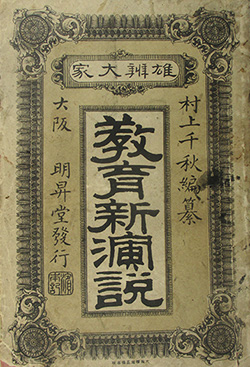 雄辨大家
村上千秋編纂
教育新演説
大阪 明昇堂發行